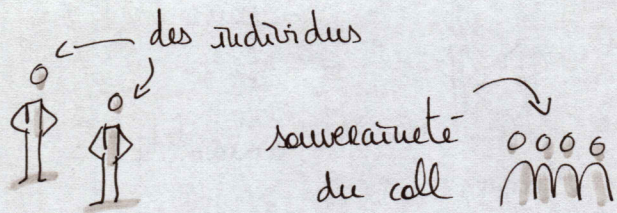 des individus
souveraineté
du coll